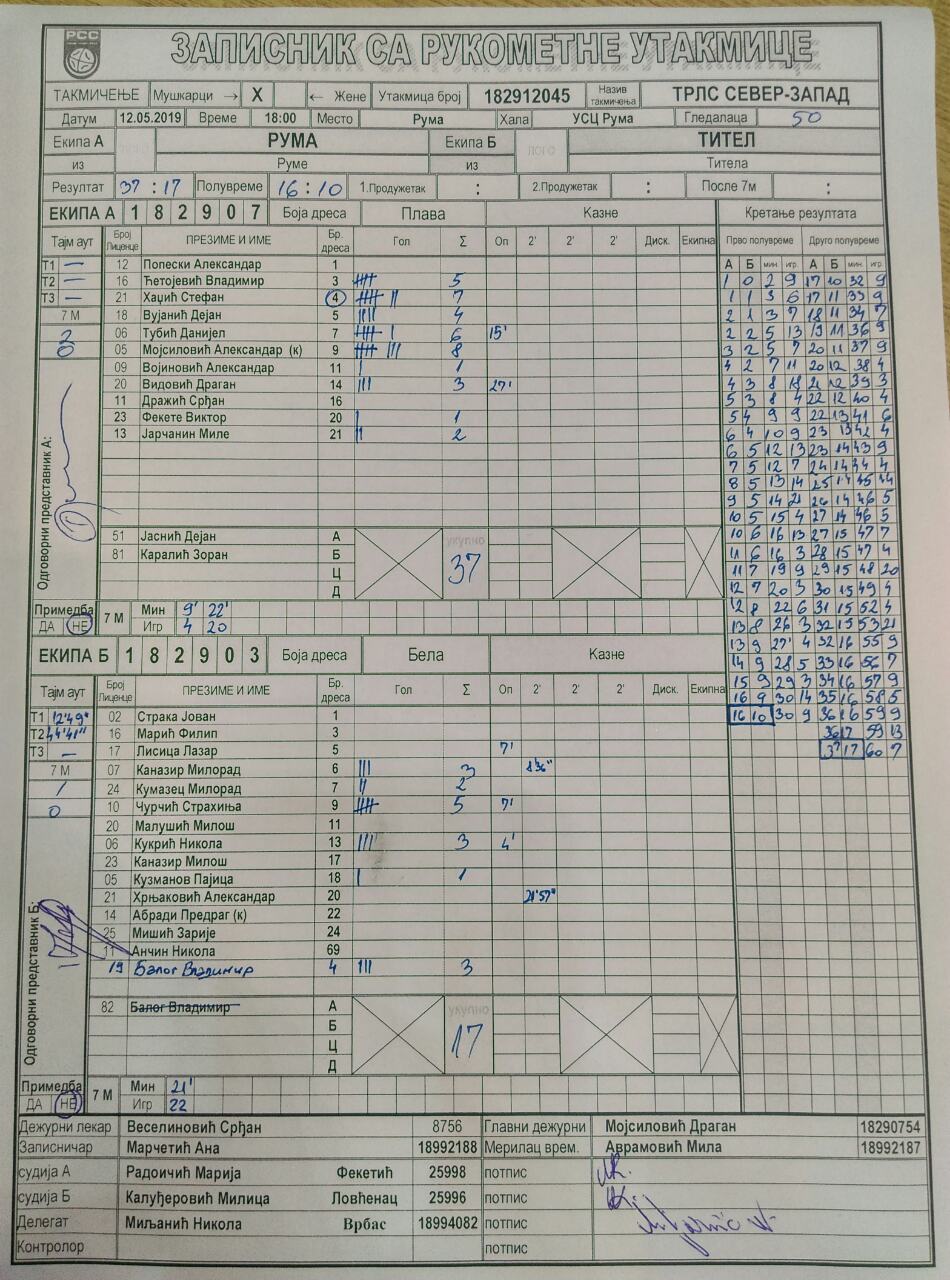 РСС
ЗАПИСНИК СА РУКОМЕТНЕ УТАКМИЦЕ
ТАКМИЧЕЊЕ Мушкарци → X ← Жене Утакмица број 182912045 Назив такмичења ТРЛС СЕВЕР-ЗАПАД
Датум 12.05.2019 Време 18:00 Место Рума Хала УСЦ Рума Гледалаца 50
Екипа А РУМА Екипа Б ЛОГО ТИТЕЛ
из Руме из Титела
Резултат 37 : 17 Полувреме 16 : 10 1.Продужетак : 2.Продужетак : После 7м :
ЕКИПА А 1 8 2 9 0 7 Боја дреса Плава Казне Кретање резултата
Тајм аут Број Лиценце ПРЕЗИМЕ И ИМЕ Бр. дреса Гол Σ Оп 2' 2' 2' Диск. Екипна Прво полувреме Друго полувреме
А Б мин. игр. А Б мин. игр.
Т1 — 12 Попески Александар 1
Т2 — 16 Ћетојевић Владимир 3 5
Т3 — 21 Хаџић Стефан 4 7
7 М 18 Вујанић Дејан 5 4
3 06 Тубић Данијел 7 6 15'
0 05 Мојсиловић Александар (к) 9 8
09 Војиновић Александар 11 1
20 Видовић Драган 14 3 27'
11 Дражић Срђан 16
23 Фекете Виктор 20 1
13 Јарчанин Миле 21 2
Одговорни представник А:
51 Јаснић Дејан А укупно 37
81 Каралић Зоран Б
Ц
Д
Примедба ДА НЕ 7 М Мин 9' 22'
Игр 4 20
ЕКИПА Б 1 8 2 9 0 3 Боја дреса Бела Казне
Тајм аут Број Лиценце ПРЕЗИМЕ И ИМЕ Бр. дреса Гол Σ Оп 2' 2' 2' Диск. Екипна
Т1 12'49" 02 Страка Јован 1
Т2 44'41" 16 Марић Филип 3
Т3 — 17 Лисица Лазар 5 7'
7 М 07 Каназир Милорад 6 3 8'36"
1 24 Кумазец Милорад 7 2
0 10 Чурчић Страхиња 9 5 7'
20 Малушић Милош 11
06 Кукрић Никола 13 3 4'
23 Каназир Милош 17
05 Кузманов Пајица 18 1
21 Хрњаковић Александар 20 21'57"
14 Абради Предраг (к) 22
25 Мишић Зарије 24
11 Анчин Никола 69
19 Балог Владимир 4 3
Одговорни представник Б:
82 Балог Владимир А укупно 17
Б
Ц
Д
Примедба ДА НЕ 7 М Мин 21'
Игр 22
1 0 2 9 17 10 32 9
1 1 3 6 17 11 33 9
2 1 3 7 18 11 34 7
2 2 5 13 19 11 36 9
3 2 5 7 20 11 37 9
4 2 7 11 20 12 38 4
4 3 8 18 21 12 39 3
5 3 8 4 22 12 40 4
5 4 9 9 22 13 41 6
6 4 10 9 23 13 42 4
6 5 12 13 23 14 43 9
7 5 12 7 24 14 44 4
8 5 13 14 25 14 45 14
9 5 14 21 26 14 46 5
10 5 15 4 27 14 46 5
10 6 16 13 27 15 47 7
11 6 16 3 28 15 47 4
11 7 19 9 29 15 48 20
12 7 20 3 30 15 49 4
12 8 22 6 31 15 52 4
13 8 26 3 32 15 53 21
13 9 27' 4 32 16 55 9
14 9 28 5 33 16 56 7
15 9 29 3 34 16 57 9
16 9 30 14 35 16 58 5
16 10 30 9 36 16 59 9
36 17 59 13
37 17 60 7
Дежурни лекар Веселиновић Срђан 8756 Главни дежурни Мојсиловић Драган 18290754
Записничар Марчетић Ана 18992188 Мерилац врем. Аврамовић Мила 18992187
судија А Радоичић Марија Фекетић 25998 потпис
судија Б Калуђеровић Милица Ловћенац 25996 потпис
Делегат Миљанић Никола Врбас 18994082 потпис
Контролор потпис